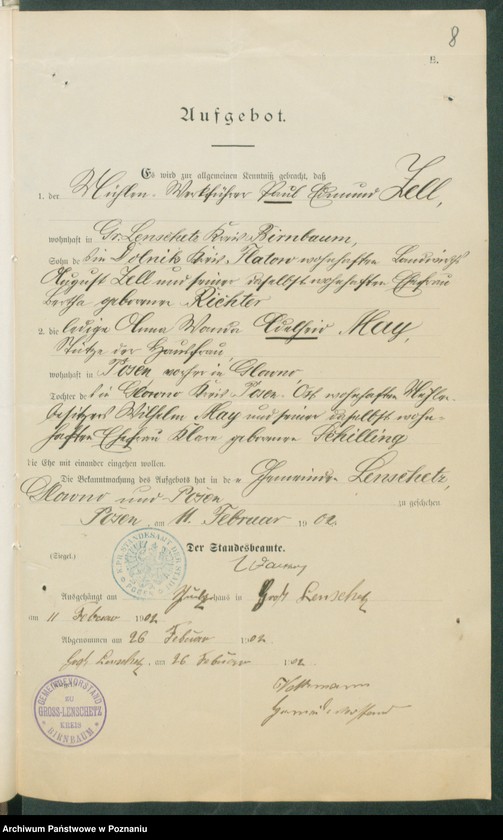 8
B.
Aufgebot.
Es wird zur allgemeinen Kenntniß gebracht, daß
1. der Mühlen-Werkführer Paul Edmund Zell,
wohnhaft in Gr. Lenschetz Kreis Birnbaum,
Sohn des in Dolnik Kreis Flatow wohnhaften Landwirths
August Zell und seiner daselbst wohnhaften Ehefrau
Bertha geborenen Richter
2. die ledige Anna Wanda Adelheid May,
Stütze der Hausfrau,
wohnhaft in Posen vorher in Glowno,
Tochter des in Glowno Kreis Posen-Ost wohnhaften Mühlen-
besitzers Wilhelm May und seiner daselbst wohn-
haften Ehefrau Klara geborenen Schilling
die Ehe mit einander eingehen wollen.
Die Bekanntmachung des Aufgebots hat in den Gemeinden Lenschetz,
Glowno und Posen
zu geschehen.
Posen am 11. Februar 1902
Der Standesbeamte.
(Siegel.)
KPR. STANDESAMT
POSEN
Ausgehängt am Schulzhaus in Groß Lenschetz
am 11 Februar 1902
Abgenommen am 26 Februar 1902
Groß Lenschetz am 26 Februar 1902
GEMEINDEVORSTAND
ZU
GROSS-LENSCHETZ
KREIS
BIRNBAUM
Volkmann
Gemeindevorstand
Archiwum Państwowe w Poznaniu
www.szukajwarchiwach.pl